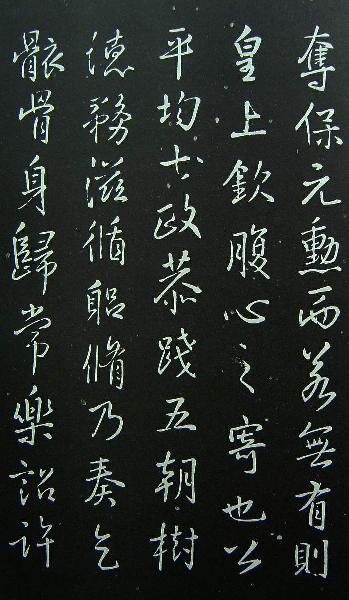 奪保元勲而若無有則
皇上欽腹心之寄也公
平均七政恭踐五朝樹
德務滋循躬脩乃奏乞
骸骨身歸常樂詔許